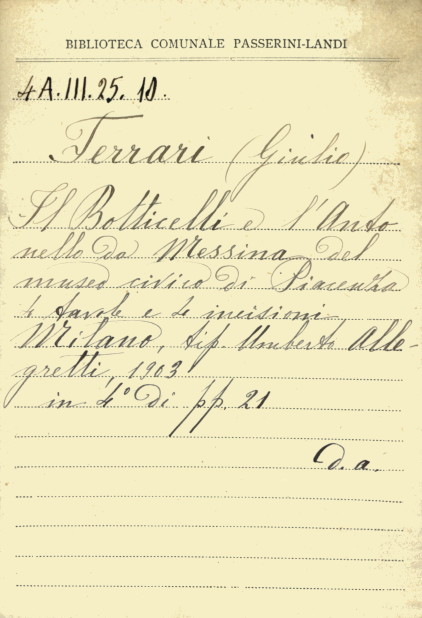 BIBLIOTECA COMUNALE PASSERINI-LANDI
4A.III.25.10.
Ferrari (Giulio)
Il Botticelli e l'Anto
nello da Messina del
museo civico di Piacenza
4 tavole e 4 incisioni
Milano, tip Umberto Alle-
gretti, 1903
in 4° di pp. 21
d.a.